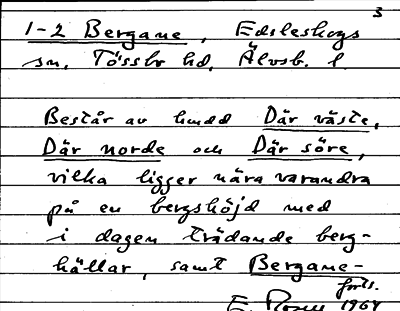 3
1-2 Bergane, Edsleskogs
sn. Tössbo hd. Älvsb. l.
Består av hmdd Där väste,
Där norde och Där söre,
vilka ligger nära varandra
på en bergshöjd med
i dagen trädande berg-
hällar, samt Bergane-
forts.
E. 1964